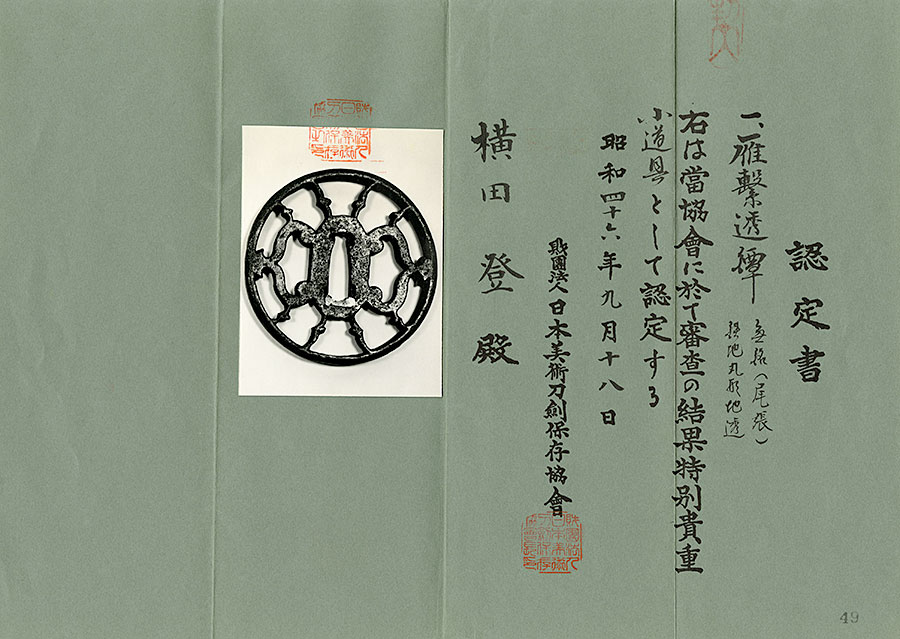 認定書
一、雁繋透鐔
無銘(尾張)
鉄地丸形地透
右は當協會に於て審査の結果特別貴重
小道具として認定する
昭和四十六年九月十八日
財團法人日本美術刀劍保存協會
横田登殿
49